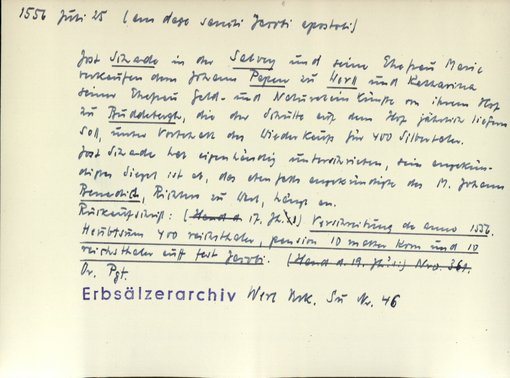 1556 Juli 25 (am dage sancti Jacobi apostoli)
Jost Schade in der Salvey und seine Ehefrau Marie
verkaufen dem Johann Pepen zu Werll und Katharina
seiner Ehefrau Geld- und Natureleinkünfte von ihrem Hof
zu Buddebergh, die der Schulte auf dem Hof jährlich liefern
soll, unter Vorbehalt des Wiederkaufs für 400 Silbertaler.
Jost Schade hat eigenhändig unterschrieben, sein angekün-
digtes Siegel ist ab, das ebenfalls angekündigte des M. Johann
Benedict, Richters zu Werl, hängt an.
Rückaufschrift: (Hand d. 17. Jh.s) Verschreibung de anno 1556.
Heubtsum 400 reichsthaler, pension 10 malter korn und 10
reichsthaler uff fest Jacobi. (Hand d. 19. Jh.s:) Nro. 361.
Or. Pgt.
Erbsälzerarchiv Werl Urk. Nr. 46